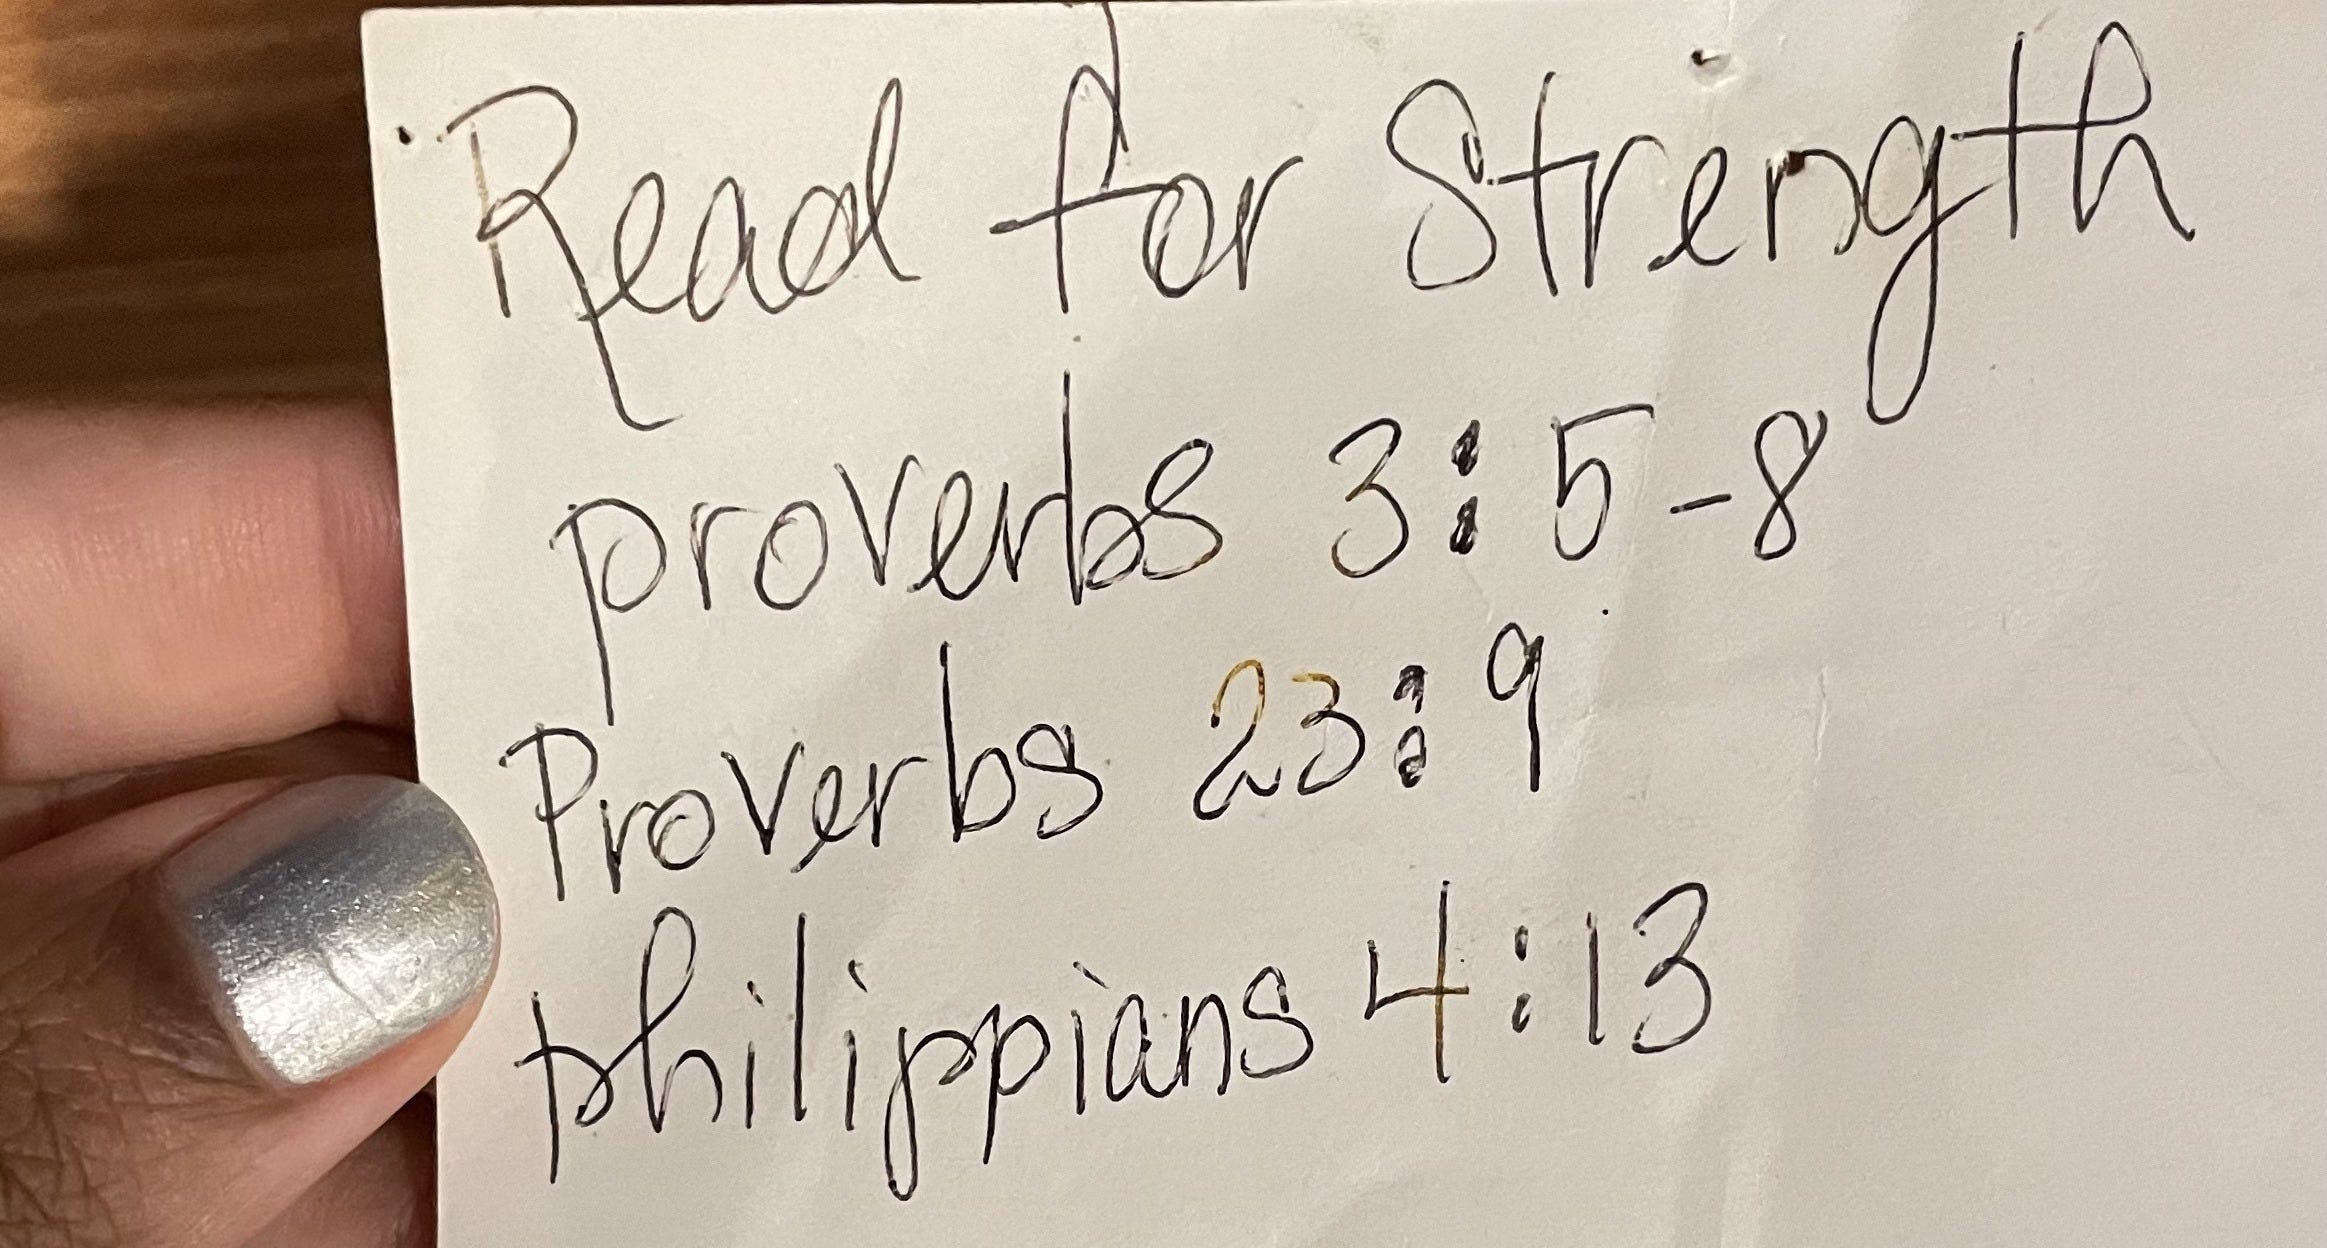 Read for Strength
proverbs 3:5-8
Proverbs 23:9
philippians 4:13